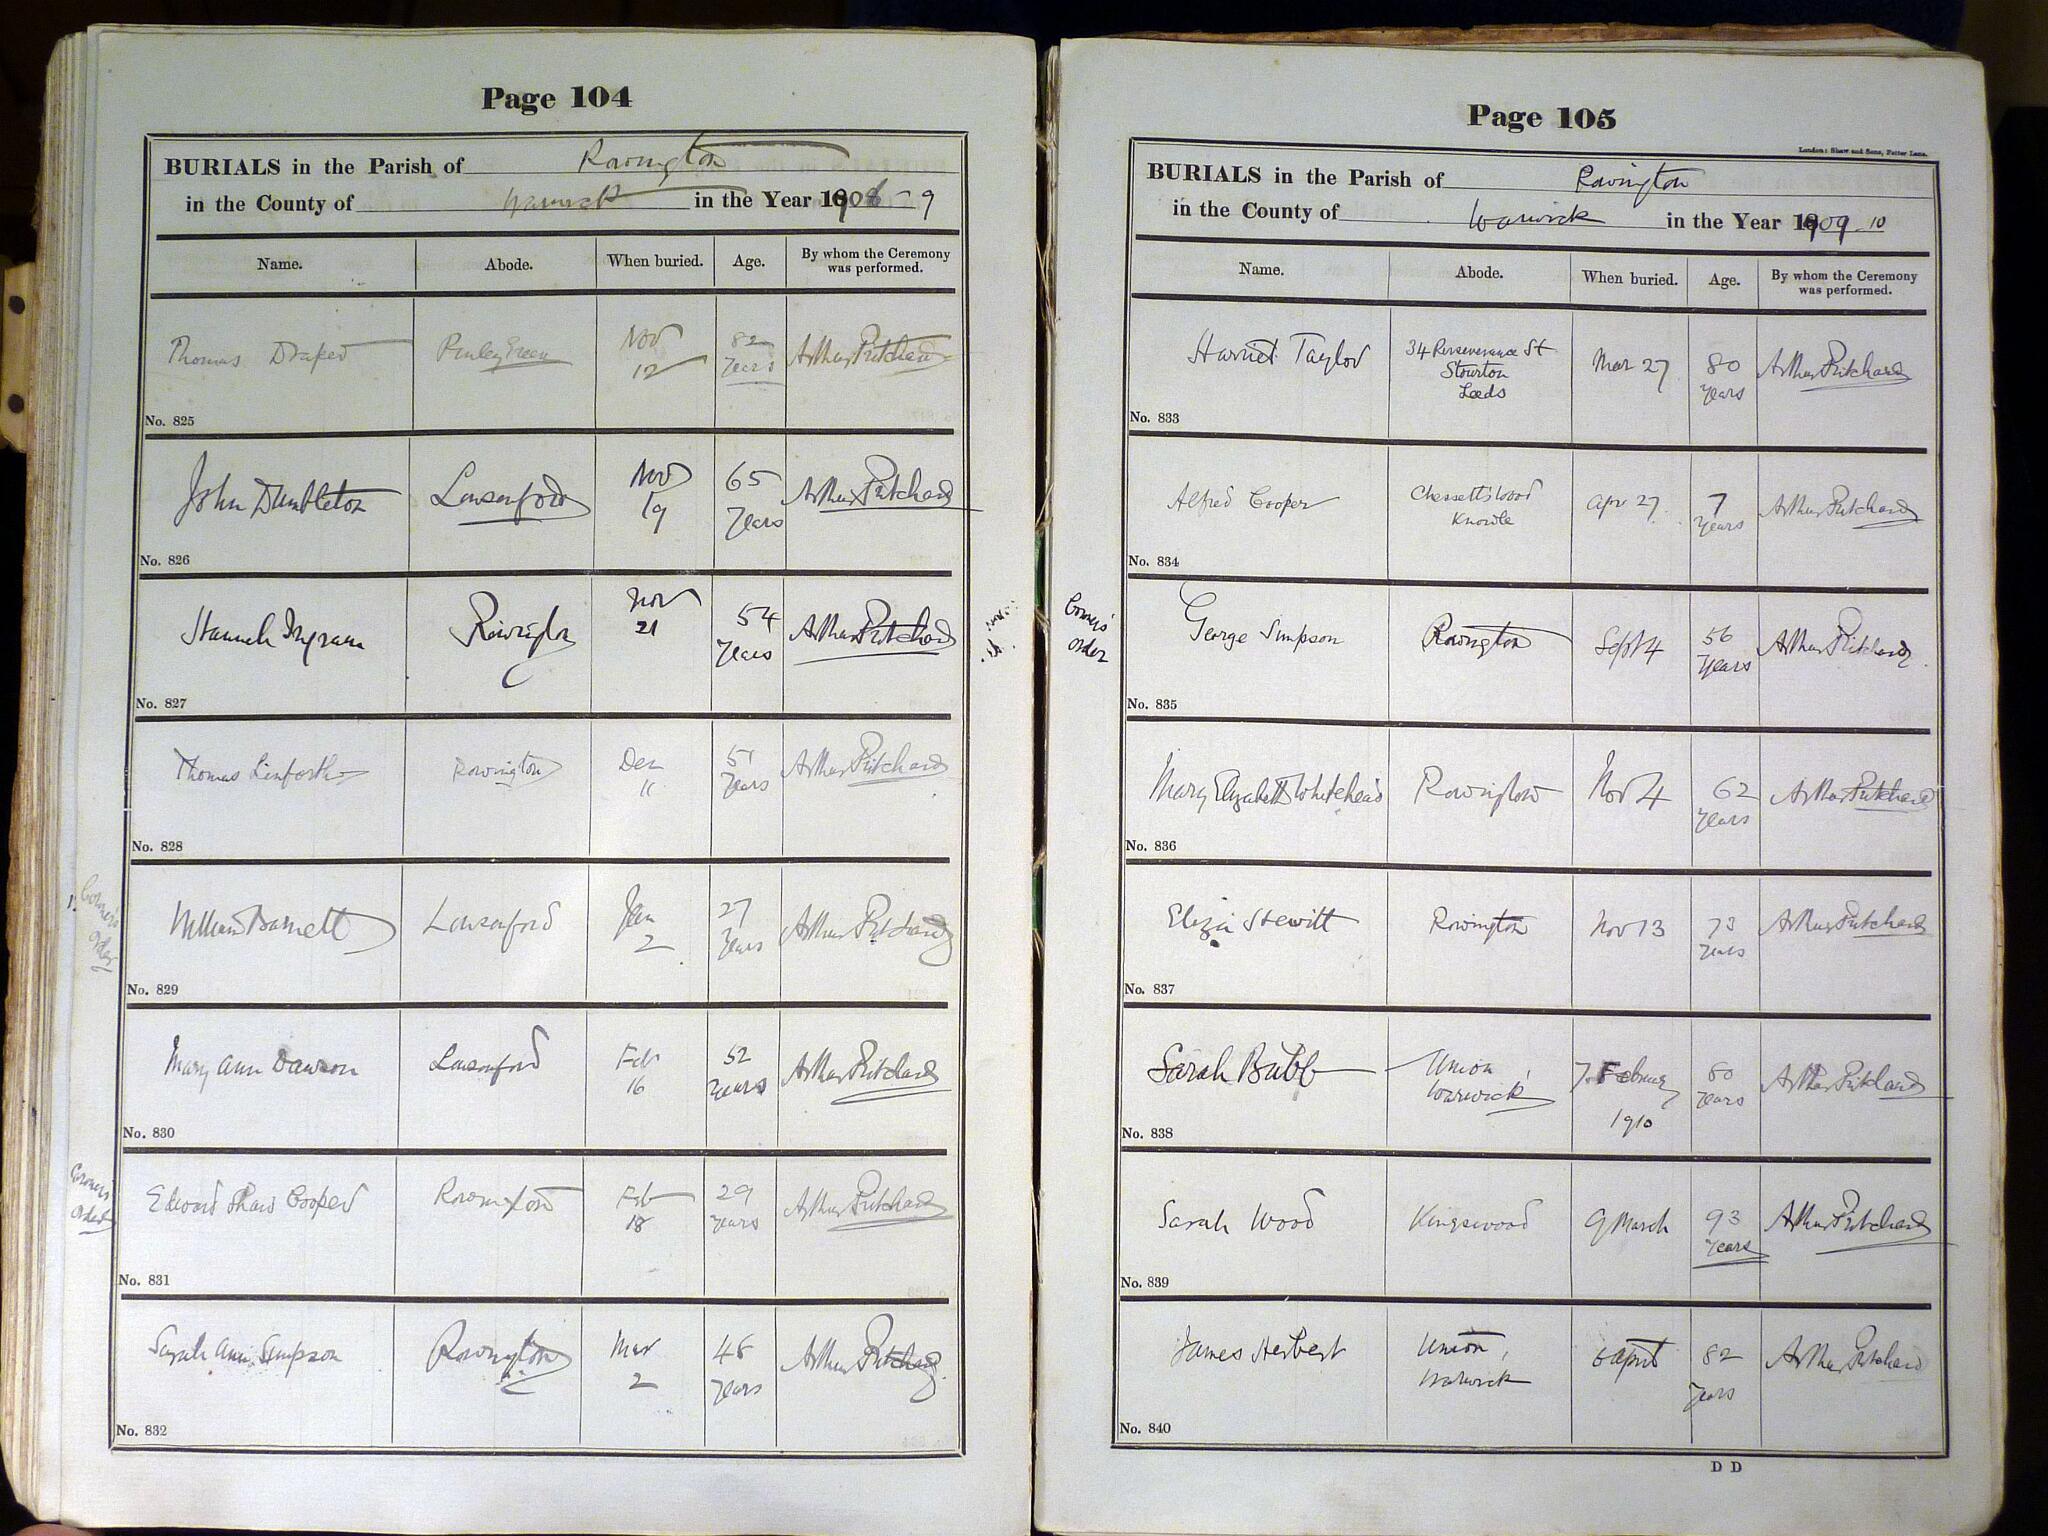 Page 104
BURIALS in the Parish of Rowington
in the County of Warwick in the Year 1908-9
Name. Abode. When buried. Age. By whom the Ceremony was performed.
Thomas Draper Pinley Green Nov 12 82 Years Arthur Pritchard
No. 825
John Dumbleton Lowsonford Nov 19 65 Years Arthur Pritchard
No. 826
Hannah Ingram Rowington Nov 21 54 Years Arthur Pritchard
No. 827
Thomas Linforth Rowington Dec 11 51 Years Arthur Pritchard
No. 828
Coroner's Order
William Barnett Lowsonford Jan 2 27 Years Arthur Pritchard
No. 829
Mary Ann Dawson Lowsonford Feb 16 52 Years Arthur Pritchard
No. 830
Coroner's Order
Edward Shaw Cooper Rowington Feb 18 29 Years Arthur Pritchard
No. 831
Sarah Ann Simpson Rowington Mar 2 48 Years Arthur Pritchard
No. 832
Page 105
London: Shaw and Sons, Fetter Lane.
BURIALS in the Parish of Rowington
in the County of Warwick in the Year 1909-10
Name. Abode. When buried. Age. By whom the Ceremony was performed.
Harriet Taylor 34 Perseverance St Stourton Leeds Mar 27 80 Years Arthur Pritchard
No. 833
Alfred Cooper Chessetts Wood Knowle Apr 27 7 Years Arthur Pritchard
No. 834
Coroner's Order
George Simpson Rowington Sept 4 56 Years Arthur Pritchard
No. 835
Mary Elizabeth Whitehead Rowington Nov 4 62 Years Arthur Pritchard
No. 836
Eliza Stewitt Rowington Nov 13 73 Years Arthur Pritchard
No. 837
Sarah Bubb Union Warwick 7 February 1910 80 Years Arthur Pritchard
No. 838
Sarah Wood Kingswood 9 March 93 Years Arthur Pritchard
No. 839
James Herbert Union, Warwick 6 April 82 Years Arthur Pritchard
No. 840
D D